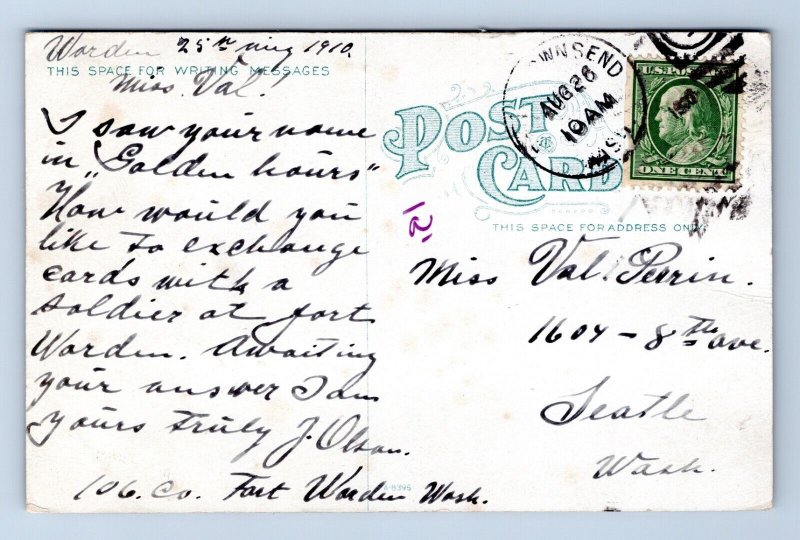 Worden 25th Aug 1910.
THIS SPACE FOR WRITING MESSAGES
Miss Val!
I saw your name
in „Golden hours"
How would you
like to exchange
cards with a
soldier at fort
Worden. Awaiting
your answer I am
yours truly J. Olson.
106. Co. Fort Worden Wash.
POST
CARD
TOWNSEND
AUG 26
10 AM
WASH.
U.S. POSTAGE
ONE CENT
12
THIS SPACE FOR ADDRESS ONLY
Miss Val Perrin.
1604 - 8th ave.
Seatle
Wash.